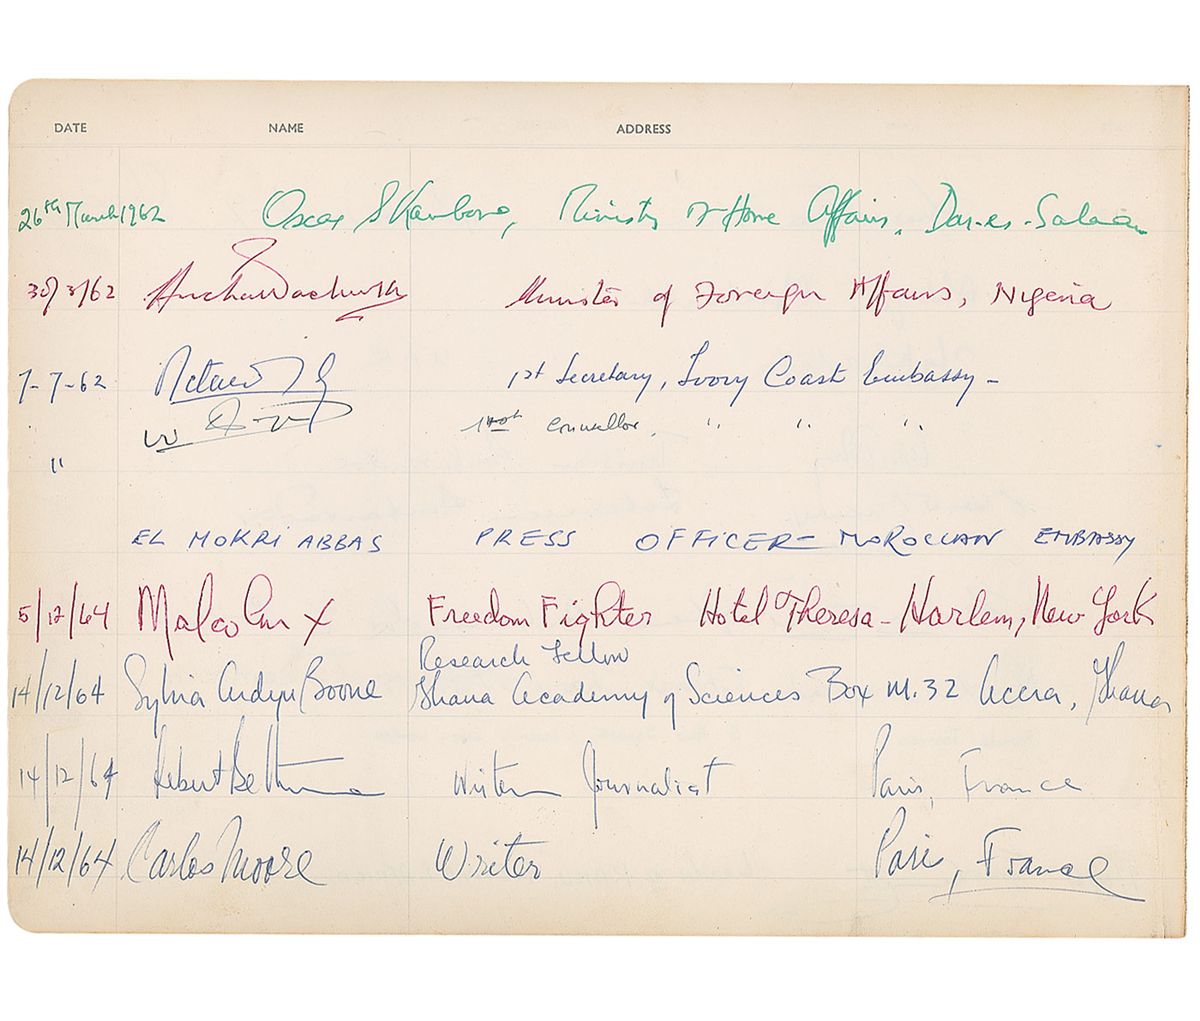 DATE NAME ADDRESS
26th March 1962 Oscar S Kambona, Ministry of Home Affairs, Dar-es-Salaam
30/3/62 Minister of Foreign Affairs, Nigeria
7-7-62 1st Secretary, Ivory Coast Embassy -
Counsellor, " " "
"
EL MOKRi ABBAS PRESS OFFiCER - MOROCCAN EMBASSY
5/12/64 Malcolm X Freedom Fighter Hotel Theresa - Harlem, New York
Research Fellow
14/12/64 Sylvia Ardyn Boone Ghana Academy of Sciences Box M.32 Accra, Ghana
14/12/64 Writer Journalist Paris, France
14/12/64 Carlos Moore Writer Paris, France